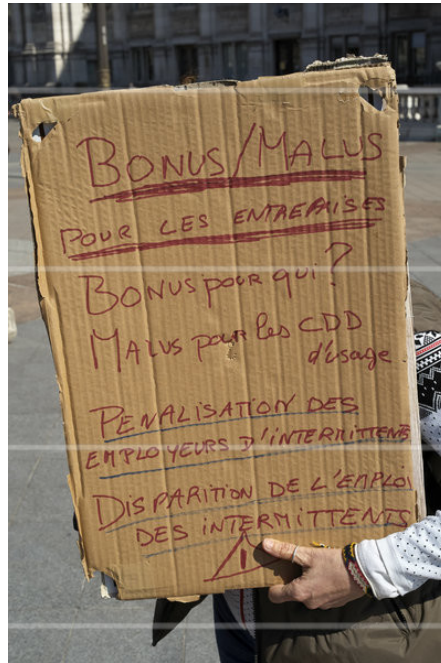 BONUS/MALUS
POUR LES ENTREPRISES
BONUS pour qui ?
MALUS pour les CDD
d'usage
PENALISATION DES
EMPLOYEURS D'INTERMITTENTS
DISPARITION DE L'EMPLOI
DES INTERMITTENTS
!